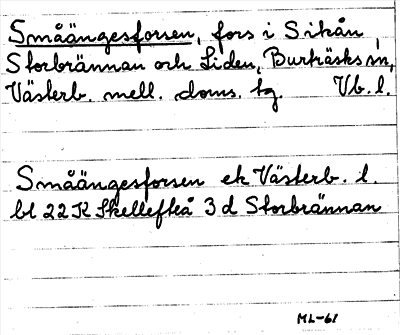 Småängesforsen, fors i Sikån,
Storbrännan och Liden, Burträsks sn,
Västerb. mell. doms. tg. Vb. l.
Småängesforsen ek Västerb. l.
bl 22 K Skellefteå 3 d Storbrännan
ML-61